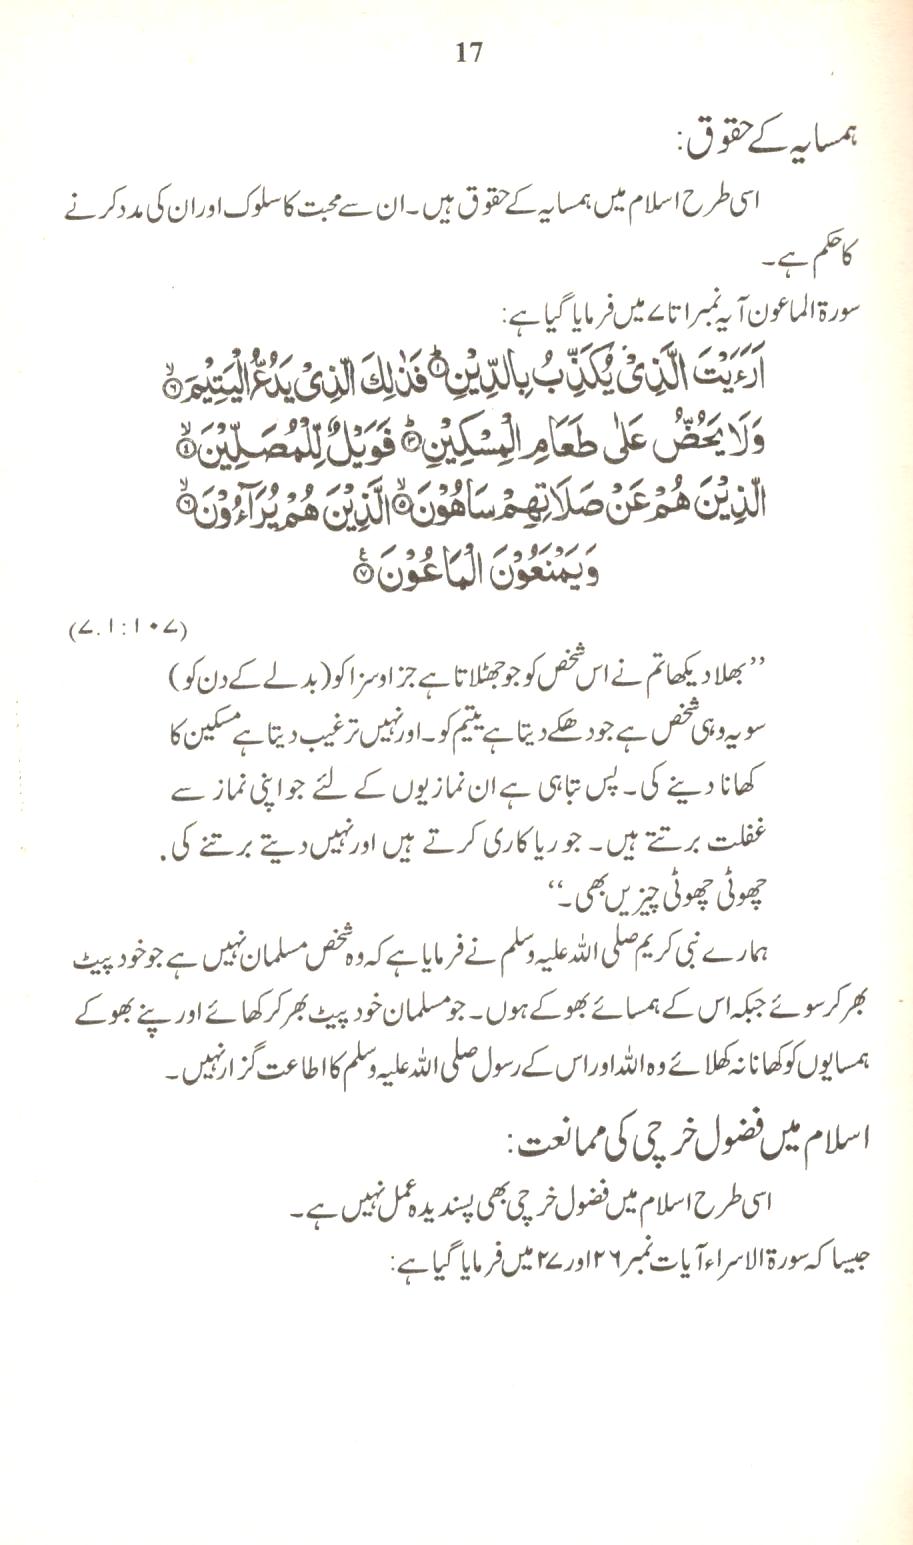 17
ہمسایہ کے حقوق:
اسی طرح اسلام میں ہمسایہ کے حقوق ہیں۔ ان سے محبت کا سلوک اور ان کی مدد کرنے
کا حکم ہے۔
سورۃ الماعون آیہ نمبر ۱ تا ۷ میں فرمایا گیا ہے:
اَرَءَيْتَ الَّذِىْ يُكَذِّبُ بِالدِّيْنِ ؕ﴿۱﴾ فَذٰلِكَ الَّذِىْ يَدُعُّ الْيَتِيْمَ ۙ﴿۲﴾
وَلَا يَحُضُّ عَلٰى طَعَامِ الْمِسْكِيْنِ ؕ﴿۳﴾ فَوَيْلٌ لِّلْمُصَلِّيْنَ ۙ﴿۴﴾
الَّذِيْنَ هُمْ عَنْ صَلَاتِهِمْ سَاهُوْنَ ۙ﴿۵﴾ الَّذِيْنَ هُمْ يُرَآءُوْنَ ۙ﴿۶﴾
وَيَمْنَعُوْنَ الْمَاعُوْنَ ﴿۷﴾
(۱۰۷:۱.۷)
”بھلا دیکھا تم نے اس شخص کو جو جھٹلاتا ہے جزا و سزا کو (بدلے کے دن کو)
سو یہ وہی شخص ہے جو دھکے دیتا ہے یتیم کو۔ اور نہیں ترغیب دیتا ہے مسکین کا
کھانا دینے کی۔ پس تباہی ہے ان نمازیوں کے لئے جو اپنی نماز سے
غفلت برتتے ہیں۔ جو ریا کاری کرتے ہیں اور نہیں دیتے برتنے کی.
چھوٹی چھوٹی چیزیں بھی۔“
ہمارے نبی کریم صلی اللہ علیہ وسلم نے فرمایا ہے کہ وہ شخص مسلمان نہیں ہے جو خود پیٹ
بھر کر سوئے جبکہ اس کے ہمسائے بھوکے ہوں۔ جو مسلمان خود پیٹ بھر کر کھائے اور پنے بھوکے
ہمسایوں کو کھانا نہ کھلائے وہ اللہ اور اس کے رسول صلی اللہ علیہ وسلم کا اطاعت گزار نہیں۔
اسلام میں فضول خرچی کی ممانعت:
اسی طرح اسلام میں فضول خرچی بھی پسندیدہ عمل نہیں ہے۔
جیسا کہ سورۃ الاسراء آیات نمبر ۲۶ اور ۲۷ میں فرمایا گیا ہے: